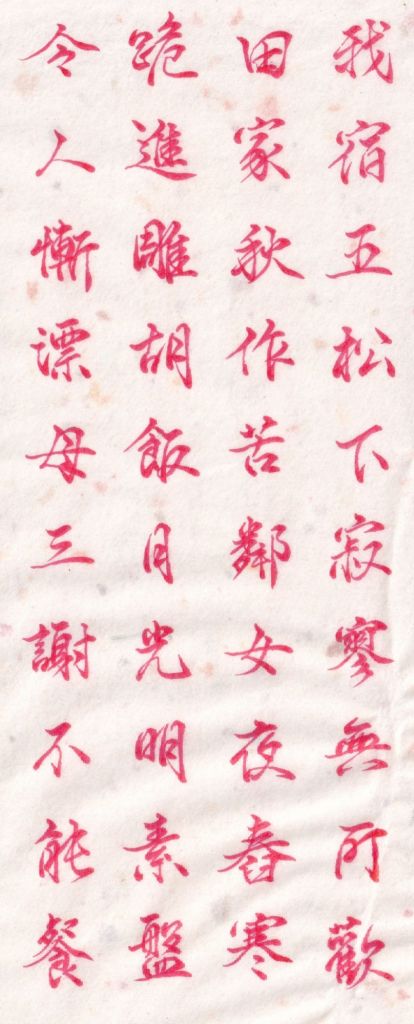 我宿五松下寂寥無所歡
田家秋作苦鄰女夜舂寒
跪進雕胡飯月光明素盤
令人慚漂母三謝不能餐